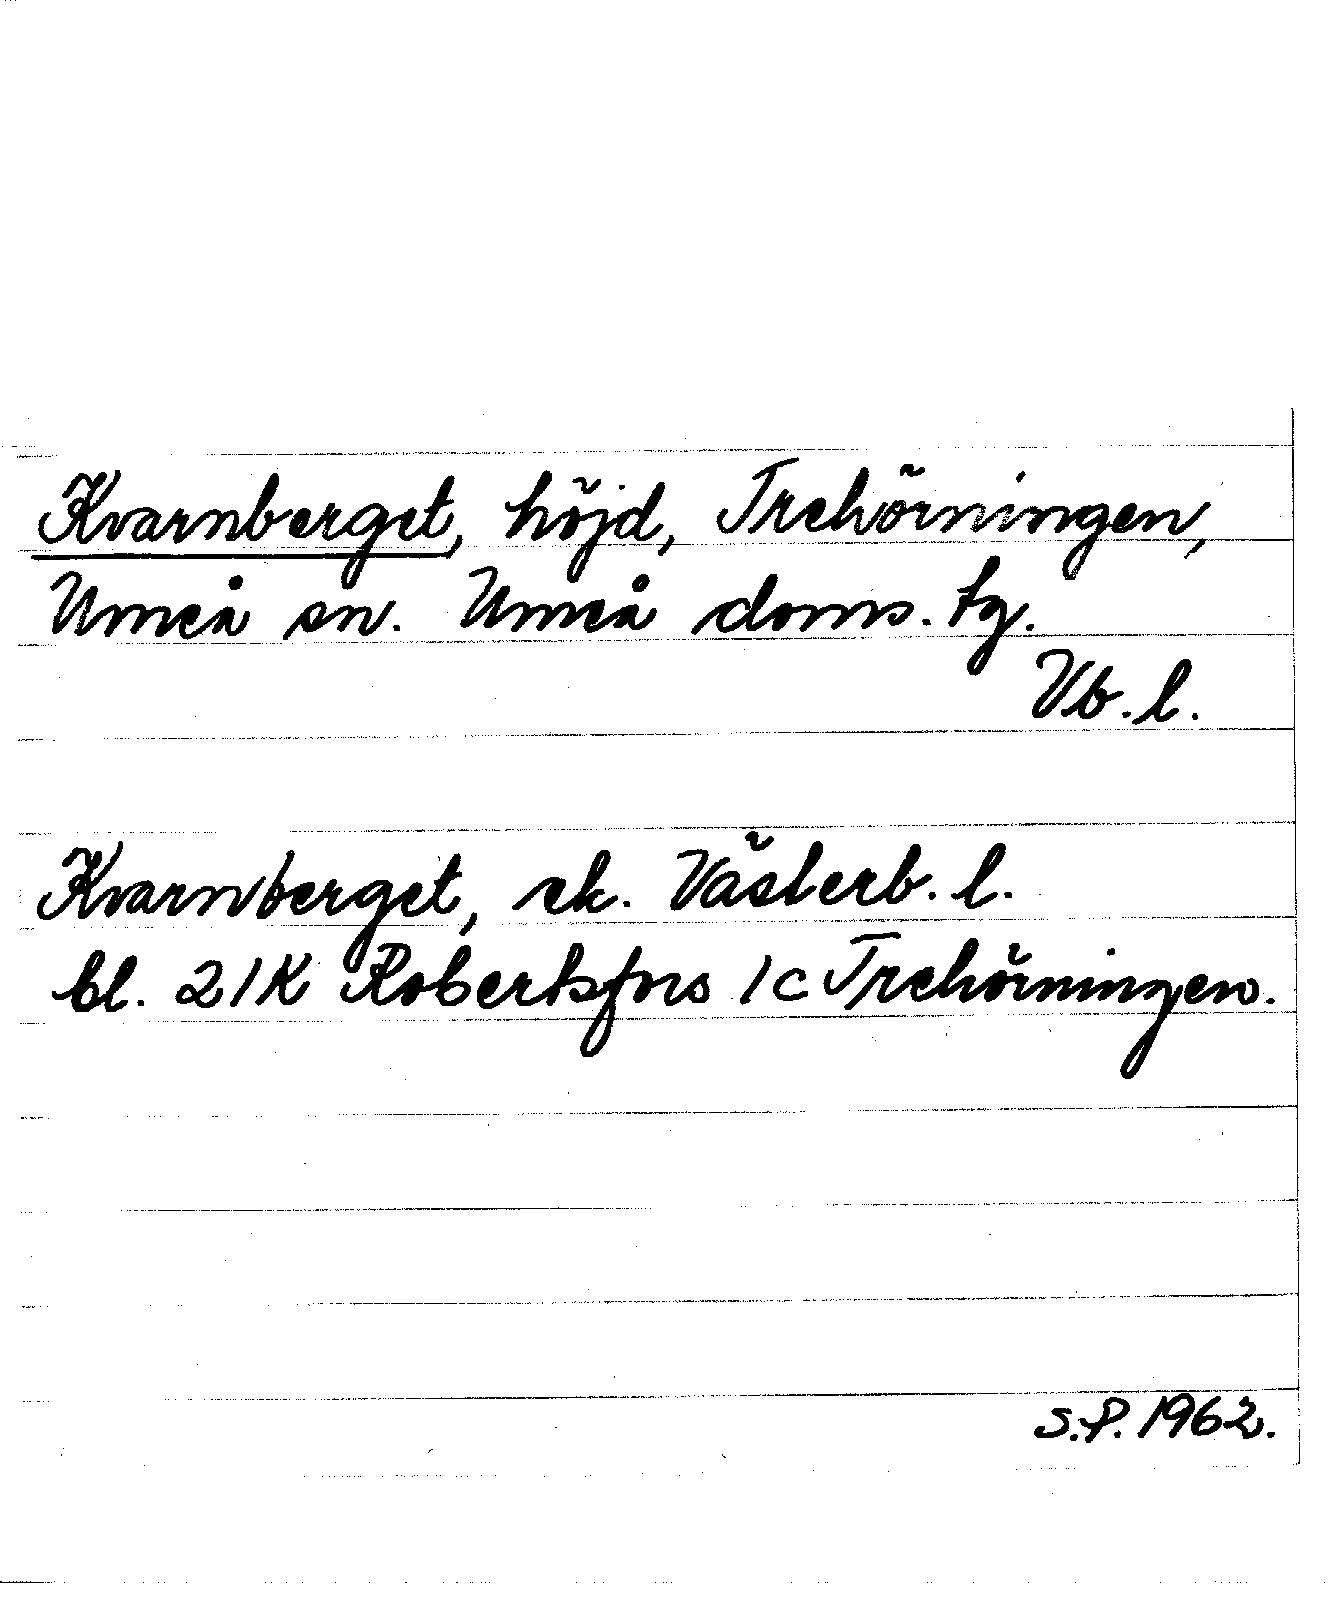 Kvarnberget, höjd, Trehörningen,
Umeå sn. Umeå doms. tg.
Vb. l.
Kvarnberget, ek. Västerb. l.
bl. 21K Robertsfors 1c Trehörningen.
S.P. 1962.